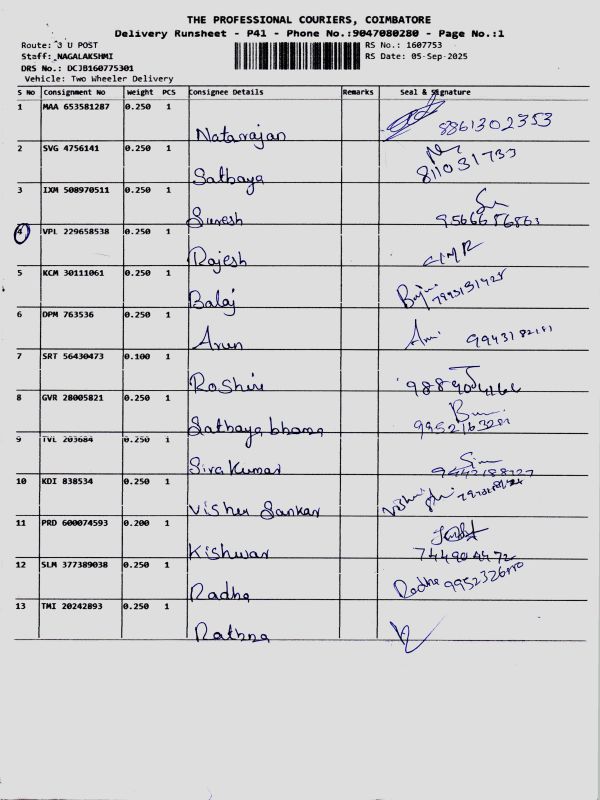 THE PROFESSIONAL COURIERS, COIMBATORE
Delivery Runsheet - P41 - Phone No.:9047080280 - Page No.:1
Route: 3 U POST
RS No.: 1607753
Staff: NAGALAKSHMI
RS Date: 05-Sep-2025
DRS No.: DCJB160775301
Vehicle: Two Wheeler Delivery
S No Consignment No Weight PCS Consignee Details Remarks Seal & Signature
1 MAA 653581287 0.250 1
Natarajan 8861302353
2 SVG 4756141 0.250 1
Sathaya 811031733
3 IXM 508970511 0.250 1
Suresh
4 VPL 229658538 0.250 1
Rajesh
5 KCM 30111061 0.250 1
Balaj
6 DPM 763536 0.250 1
Arun
7 SRT 56430473 0.100 1
Roshini
8 GVR 28005821 0.250 1
Sathaya bhama
9 TVL 203684 0.250 1
Siva Kumar
10 KDI 838534 0.250 1
Visher Sankar
11 PRD 600074593 0.200 1
Kishwar
12 SLM 377389038 0.250 1
Radha Radha
13 TMI 20242893 0.250 1
Rathna